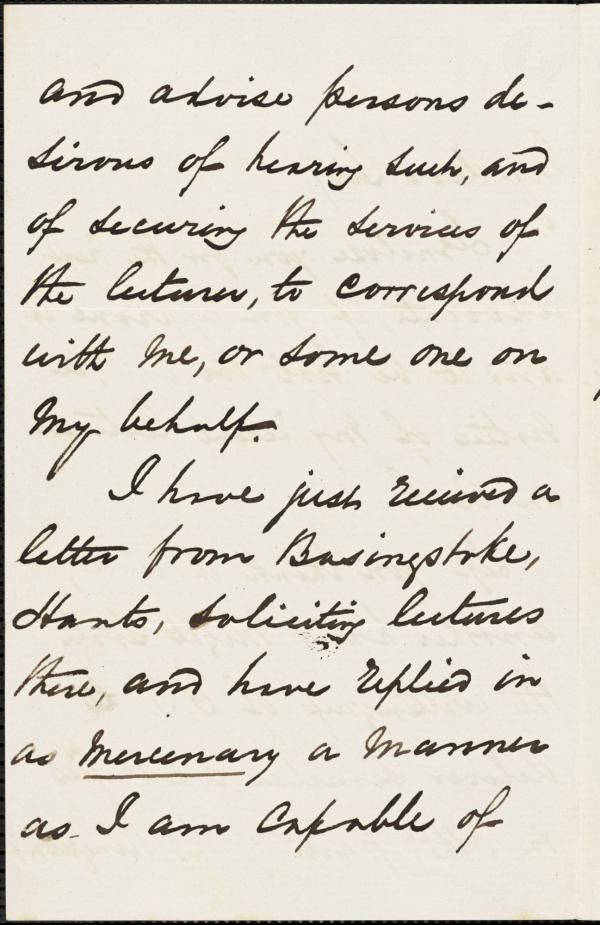 and advise persons de-
sirous of hearing such, and
of securing the services of
the lecturer, to correspond
with me, or some one on
my behalf.
I have just received a
letter from Basingstoke,
Hants, soliciting lectures
there, and have replied in
as mercenary a manner
as I am capable of